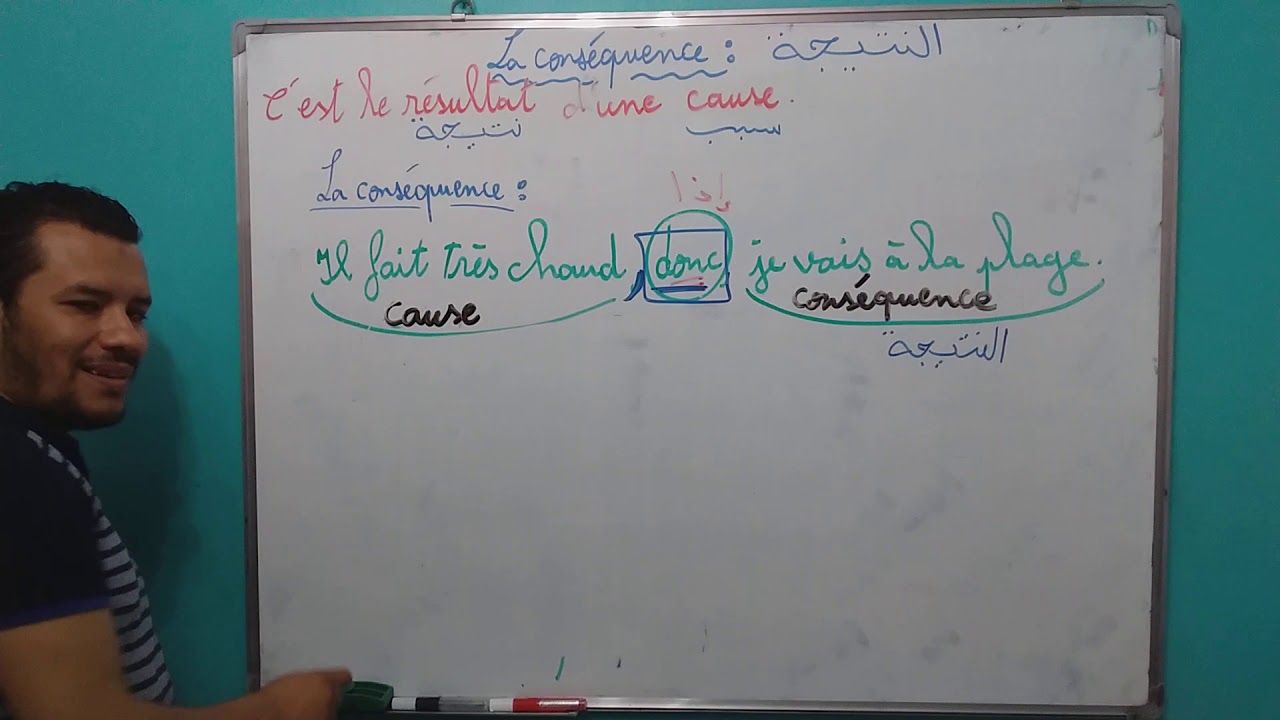 La conséquence : النتيجة
C'est le résultat d'une cause.
نتيجة سبب
La conséquence :
إذا
Il fait très chaud, donc je vais à la plage.
cause conséquence
النتيجة